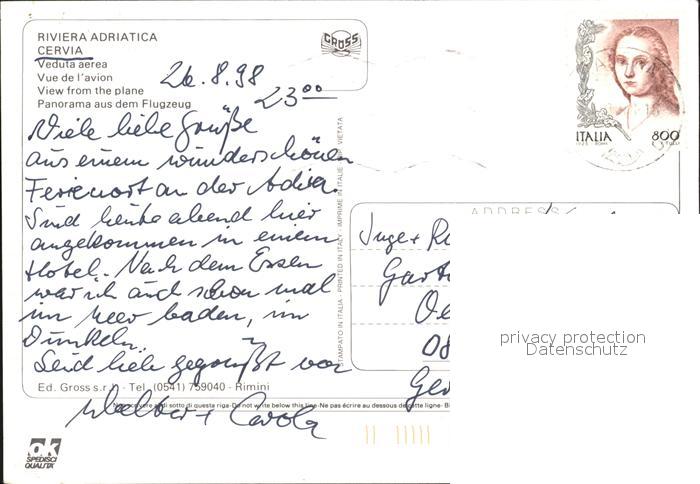 RIVIERA ADRIATICA
CERVIA
Veduta aerea
Vue de l'avion
View from the plane
Panorama aus dem Flugzeug
GROSS
26.8.98
23⁰⁰
Viele liebe Grüße
aus einem wunderschönen
Ferienort an der Adria.
Sind heute abend hier
angekommen in einem
Hotel. Nach dem Essen
war ich auch schon mal
im Meer baden, im
Dunkeln.
Seid lieb gegrüßt von
Walter + Carola
Ed. Gross s.r.l. - Tel. (0541) 759040 - Rimini
Non scrivere al di sotto di questa riga-Do not write below this line-Ne pas écrire au dessous de cette ligne-
STAMPATO IN ITALIA - PRINTED IN ITALY - IMPRIME EN ITALIE - VIETATA
ok
SPEDISCI
QUALITÀ
ITALIA 800
ADDRESS
Inge +
Ger
privacy protection
Datenschutz